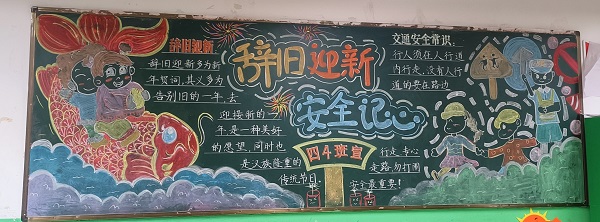 辞旧迎新
辞旧迎新多为新
年贺词,其义多为
告别旧的一年,去
迎接新的一
年是一种美好
的愿望,同时也
是汉族隆重的
传统节日。
辞旧迎新
安全记心
四4班宣
交通安全常识:
行人须在人行道
内行走,没有人行
道的要在路边
行走专心
走路勿打闹
安全最重要!